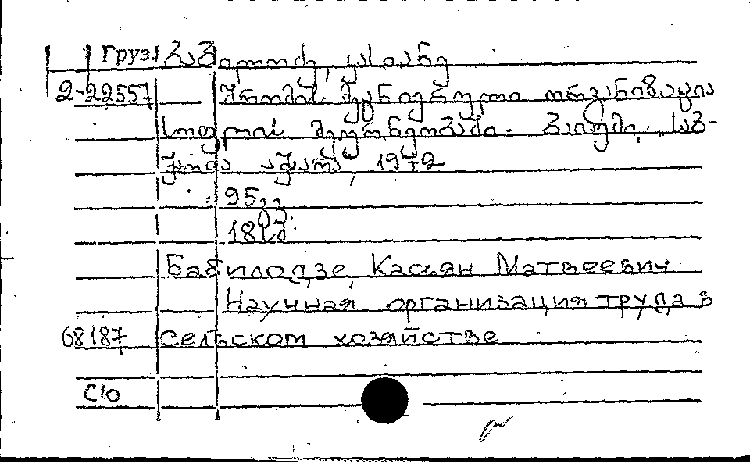 Груз.
2-22557 შრომის მეცნიერული ორგანიზაცია
სოფლის მეურნეობაში. ბათუმი, საბ-
ჭოთა აჭარა, 1972
95
18
Бабилодзе, Касьян Матвеевич
Научная организация труда в
68187 сельском хозяйстве
С/о